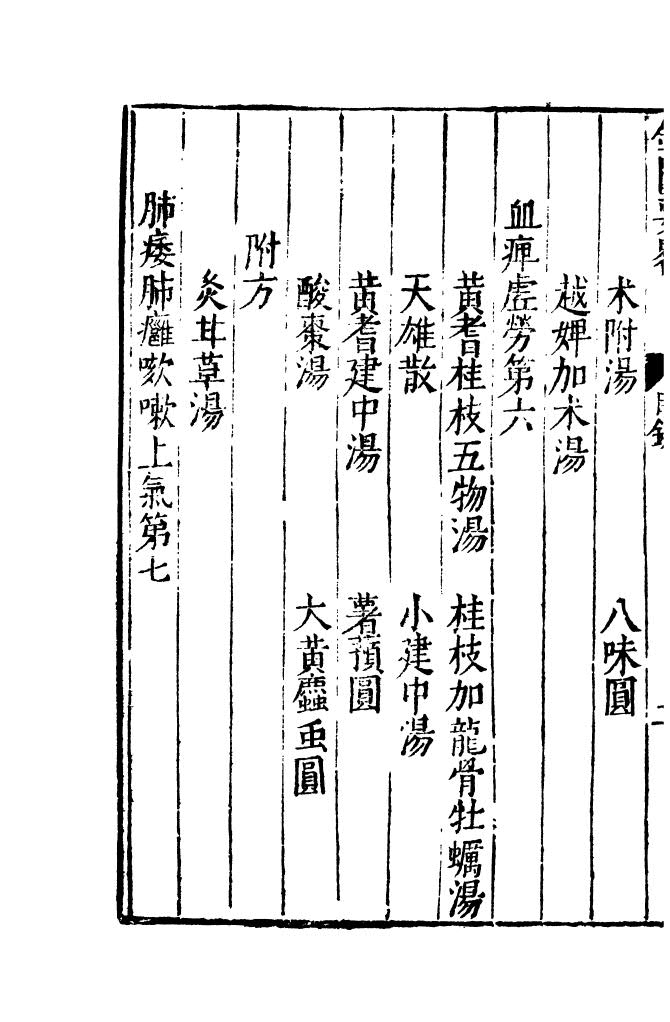 术附湯 八味圓
越婢加术湯
血痺虛勞第六
黃耆桂枝五物湯 桂枝加龍骨牡蠣湯
天雄散 小建中湯
黃耆建中湯 薯蕷圓
酸棗湯 大黃䗪虫圓
附方
炙甘草湯
肺痿肺癰欬嗽上氣第七